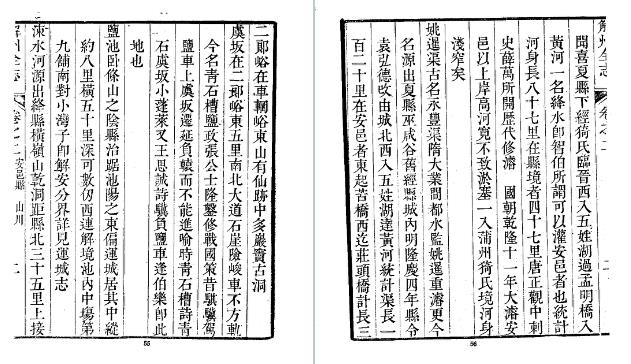 二郞峪在車輞峪東山有仙跡中多巖竇古洞
虞坂在二郞峪東五里南北大道石崖險峻車不方軌
今名青石槽鹽政張公士隆鑿修戰國策昔騏驥駕
鹽車上虞坂遷延負轅而不能進喻時青石槽詩青
石虞坂小蓬萊又王思誠詩驥負鹽車逢伯樂卽此
地也
鹽池臥條山之陰縣治踞池陽之東偏運城居其中縱
約八里橫五十里深可數仞西連解境池內中塲第
九舖南對小灣子卽解安分界詳見運城志
涑水河源出絳縣橫嶺山乾洞距縣北三十五里上接
解州全志 卷之二 安邑縣 山川 二
55
聞喜夏縣下經猗氏臨晉西入五姓湖過孟明橋入
黃河一名絳水卽智伯所謂可以灌安邑者也統計
河身長八十七里在縣境者四十七里唐正觀中刺
史薛萬所開歷代修濬 國朝乾隆十一年大濬安
邑以上岸高河寬不致淤塞一入蒲州猗氏境河身
淺窄矣
姚暹渠古名永豐渠隋大業間都水監姚暹重濬更今
名源出夏縣巫咸谷舊經縣城內明隆慶四年縣令
袁弘德改由城北西入五姓湖達黃河統計渠長一
百二十里在安邑者東起苦橋西迄莊頭橋計長三
解州全志 卷之二
56